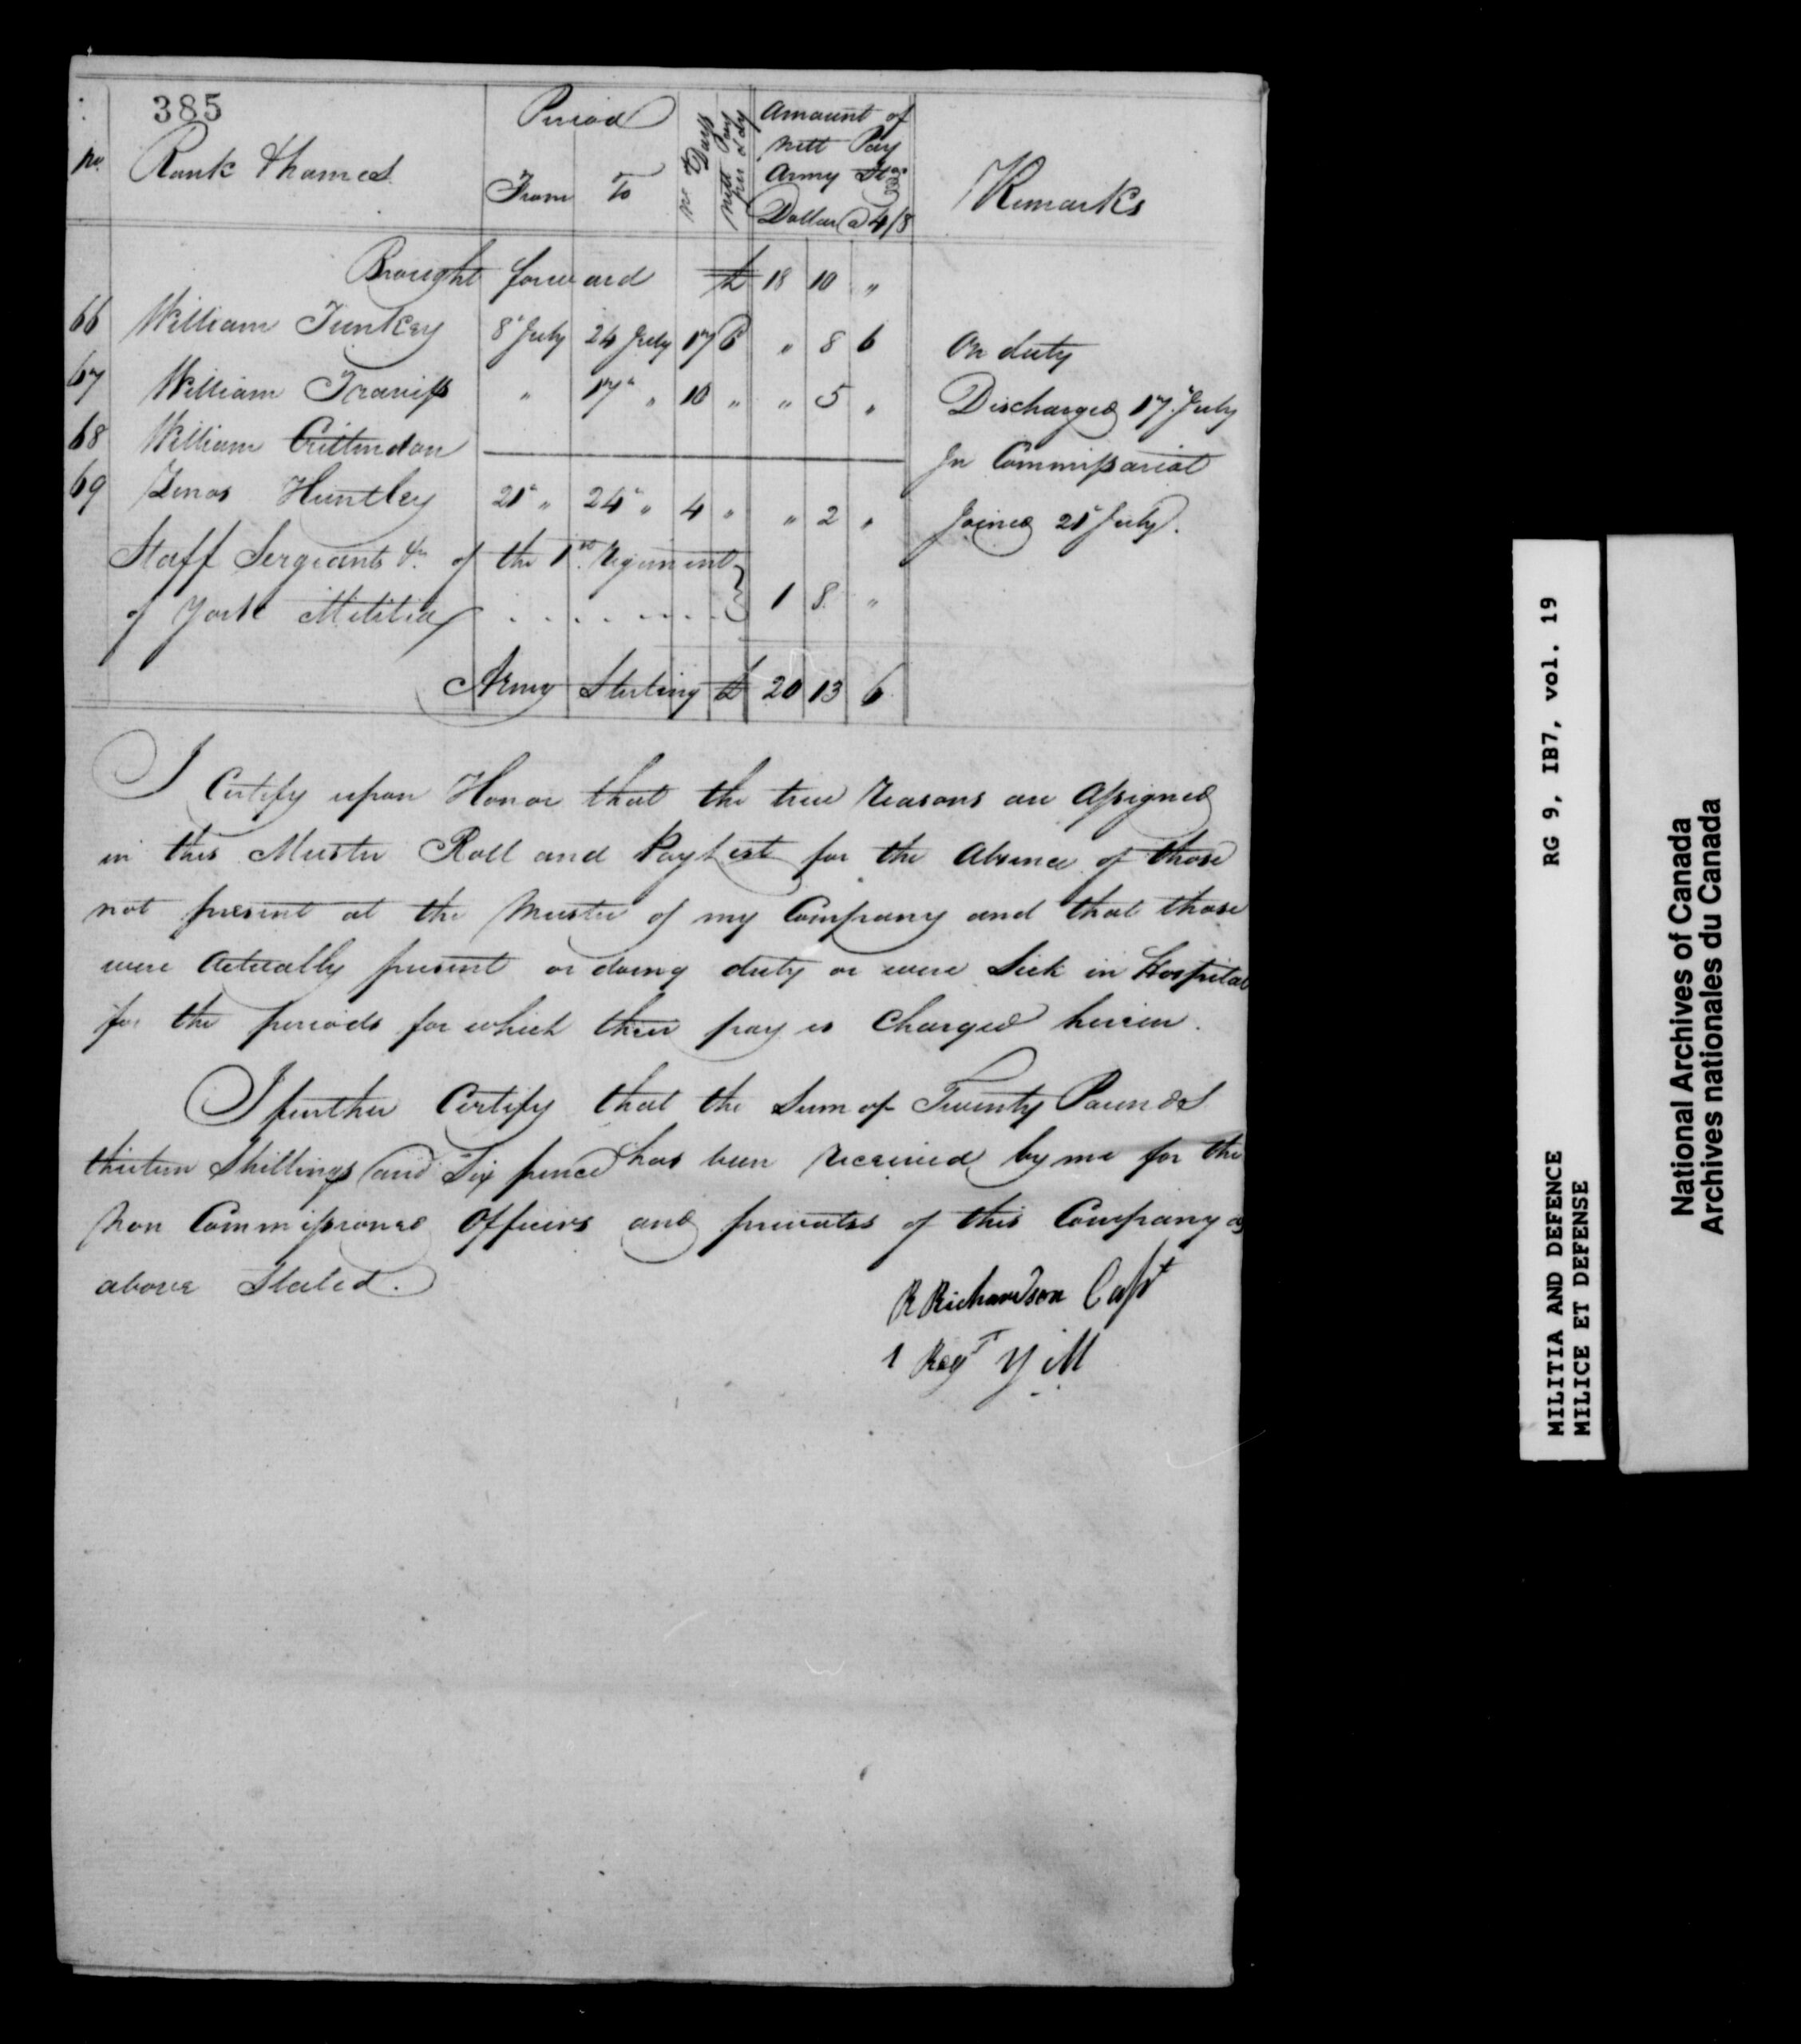 385
No. Rank & Names Period From To No of Days Nett Pay per day Amount of Nett Pay Army Stg Dollar @ 4/8 Remarks
Brought forward £ 18 10 "
66 William Tunkey 8th July 24 July 17 6 " 8 6 On duty
67 William Traviss " 17th " 10 " " 5 " Discharged 17th July
68 William Crittendon In Commissariat
69 Zenos Huntley 21st " 24th " 4 " " 2 " Joined 21st July.
Staff Sergeants &c. of the 1st Regiment
of York Militia . . . . . . . 1 8 "
Army Sterling £ 20 13 6
I Certify upon Honor that the true Reasons are Assigned
in this Muster Roll and Paylist for the Absence of those
not present at the Muster of my Company and that those
were Actually present or doing duty or were Sick in Hospital
for the periods for which their pay is Charged herein.
I further Certify that the Sum of Twenty Pounds
thirteen Shillings and Six pence has been Received by me for the
Non Commissioned Officers and privates of this Company as
above Stated.
R Richardson Capt
1 Regt Y M
MILITIA AND DEFENCE RG 9, IB7, vol. 19
MILICE ET DEFENSE
National Archives of Canada
Archives nationales du Canada